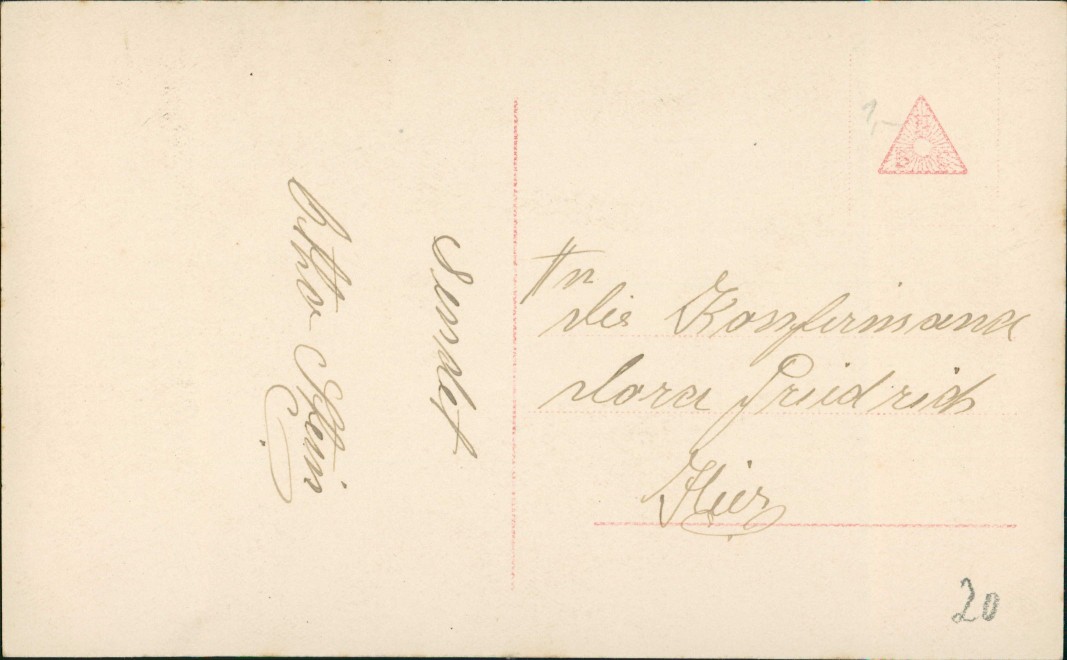 sendet
Otto Stein
An
die Konfirmand
Dora Friedrich
Hier
1,-
20